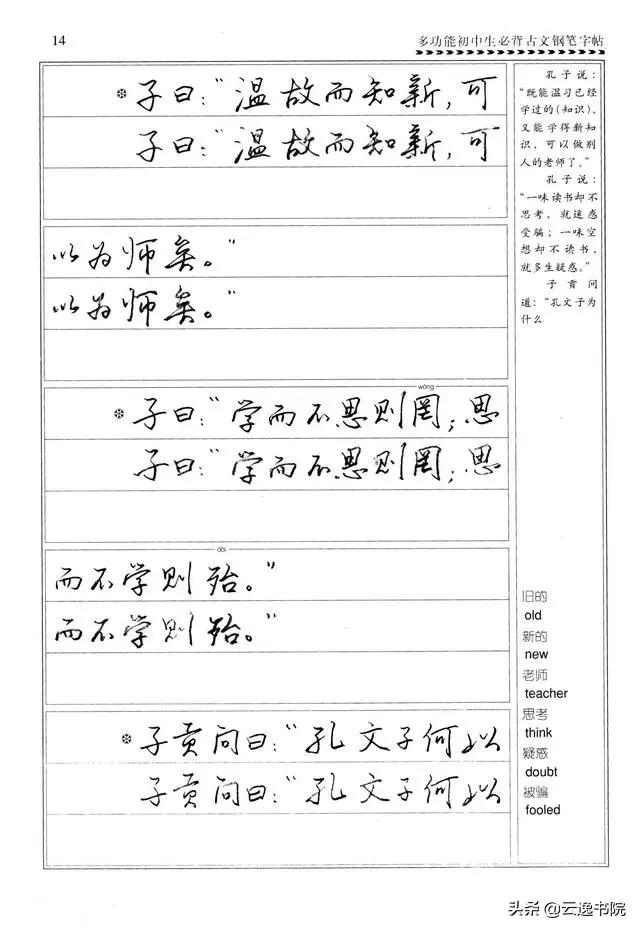 14
多功能初中生必背古文钢笔字帖
❉子曰：“温故而知新，可
子曰：“温故而知新，可
以为师矣。”
以为师矣。”
wǎng
❉子曰：“学而不思则罔；思
子曰：“学而不思则罔；思
dài
而不学则殆。”
而不学则殆。”
❉子贡问曰：“孔文子何以
子贡问曰：“孔文子何以
孔子说：
“既能温习已经
学过的(知识)，
又能学得新知
识，可以做别
人的老师了。”
孔子说：
“一味读书却不
思考、就迷惑
受骗；一味空
想却不读书，
就多生疑惑。”
子贡问
道：“孔文子为
什么
旧的
old
新的
new
老师
teacher
思考
think
疑惑
doubt
被骗
fooled
头条@云逸书院